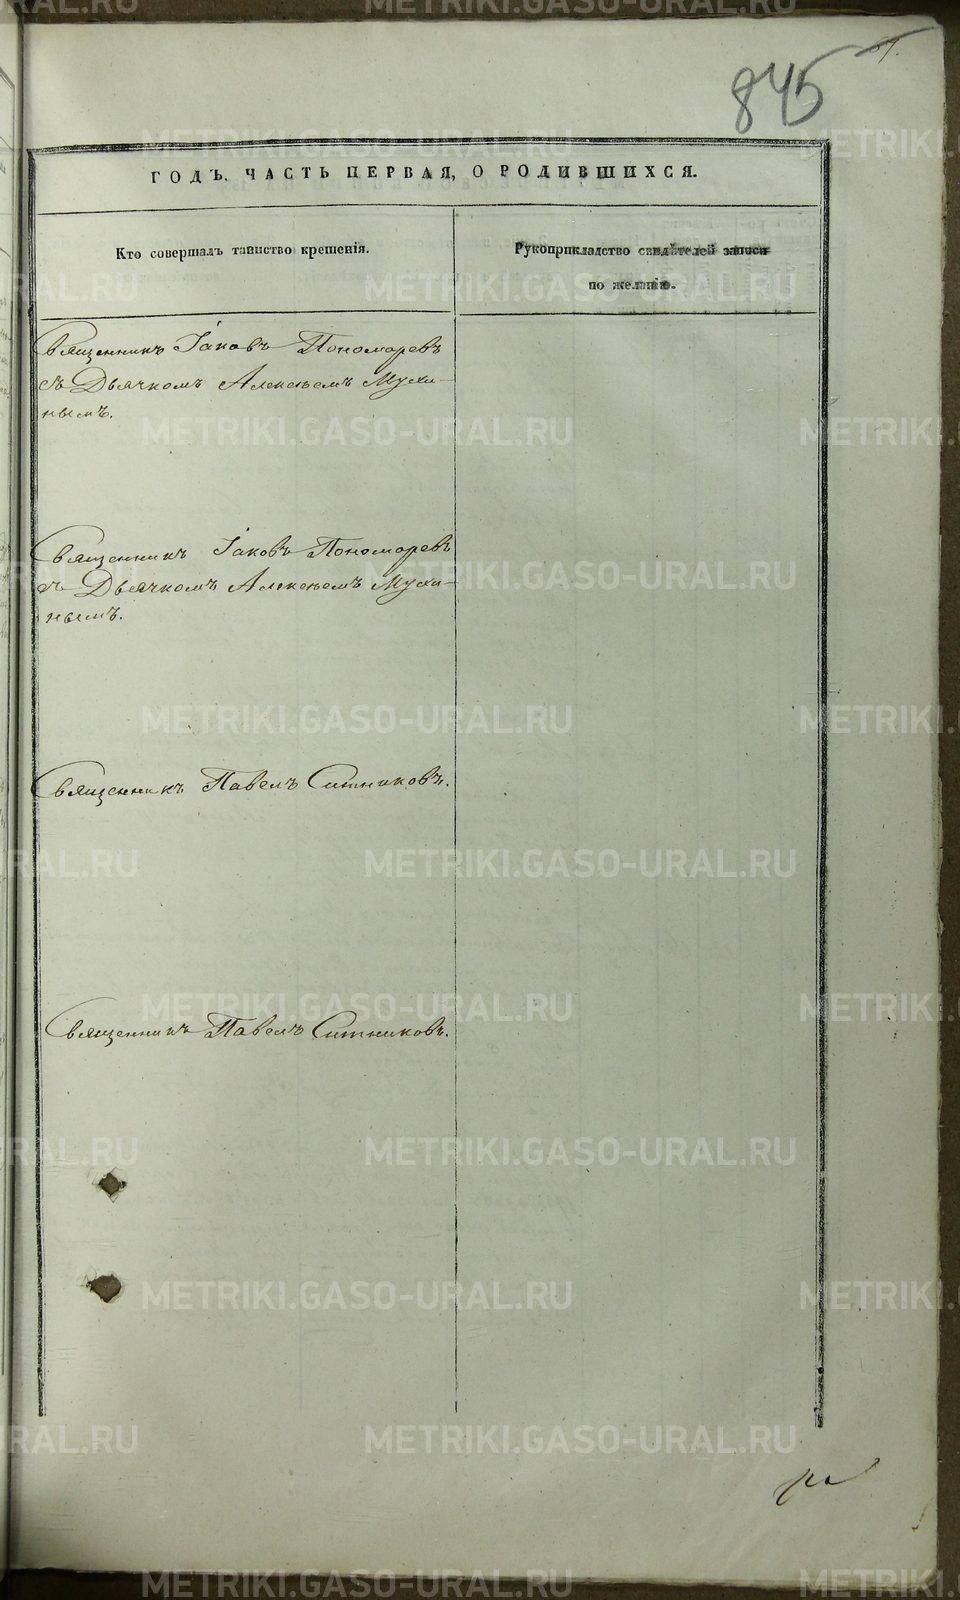 845
ГОДЪ, ЧАСТЬ ПЕРВАЯ, О РОДИВШИХСЯ.
Кто совершалъ таинство крещенія.
Рукоприкладство свидѣтелей записи
по желанію.
Священникъ Іаковъ Пономаревъ
съ Дьячкомъ Алексѣемъ Мухи-
нымъ.
Священникъ Іаковъ Пономаревъ
съ Дьячкомъ Алексѣемъ Мухи-
нымъ.
Священникъ Павелъ Ситниковъ.
Священникъ Павелъ Ситниковъ.
METRIKI.GASO-URAL.RU